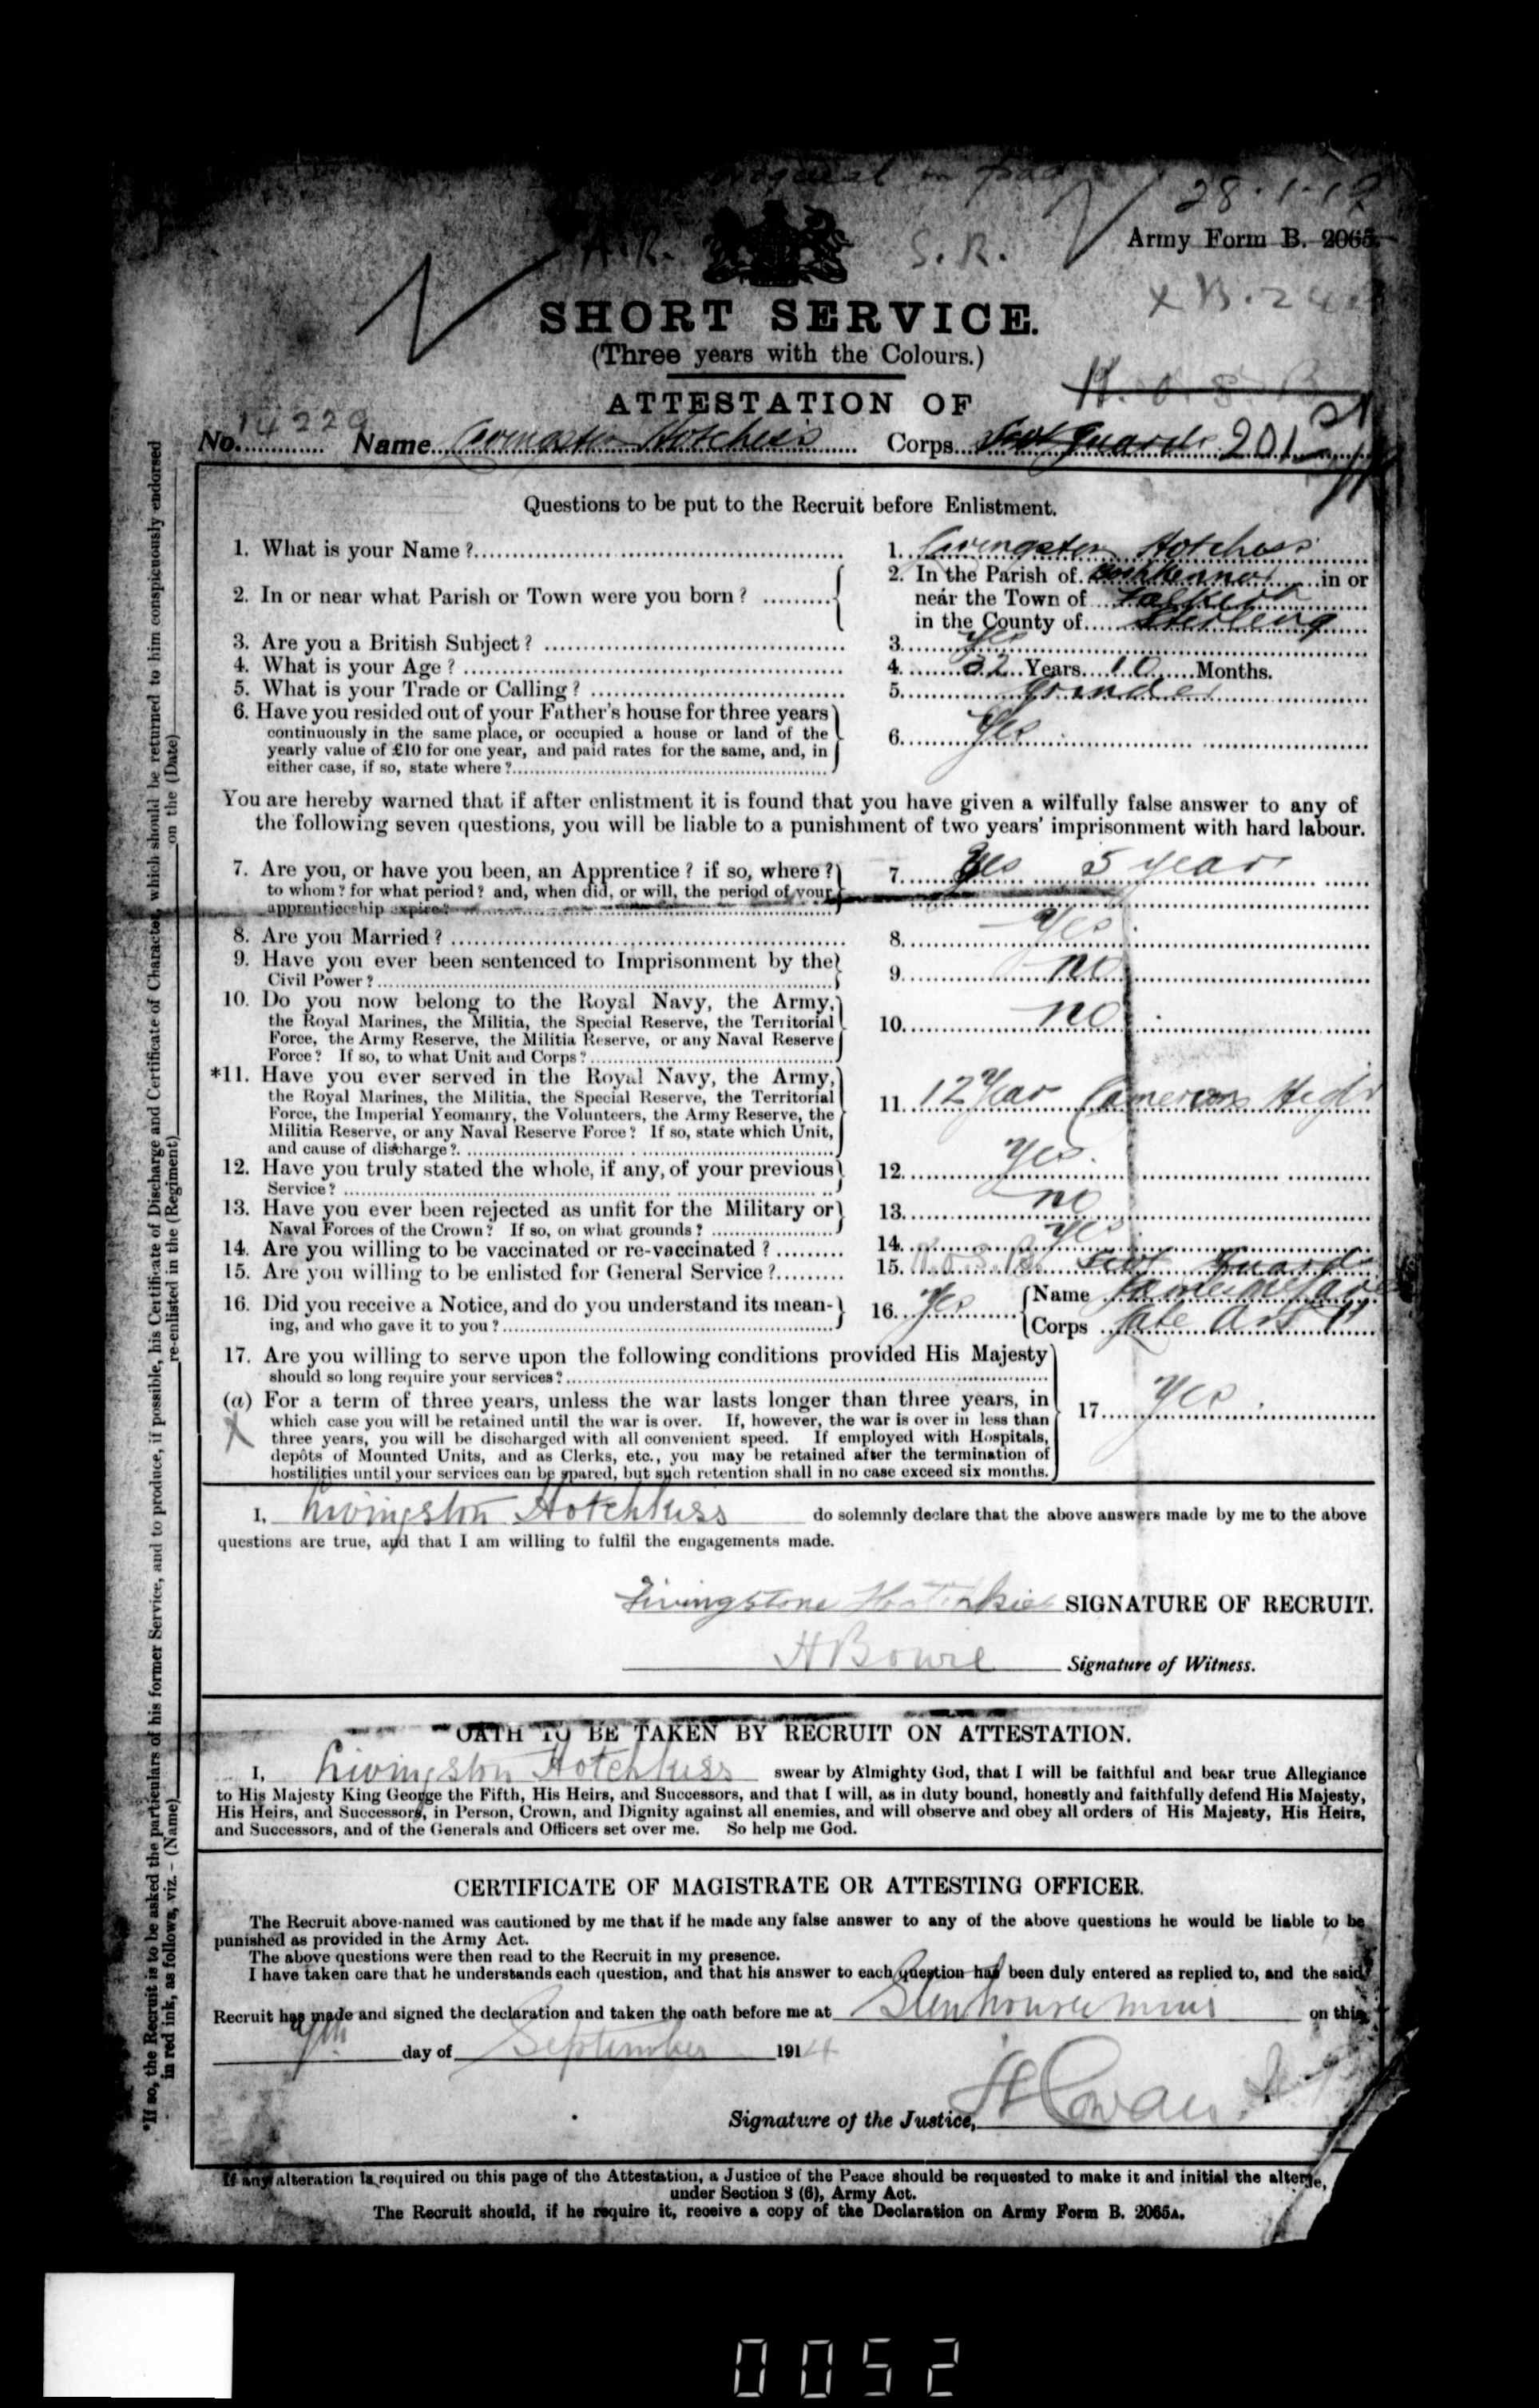 28·1·19
A.R.
S.R.
Army Form B. 2065.
SHORT SERVICE.
(Three years with the Colours.)
K. O. S. B
ATTESTATION OF
No. 14229 Name Livingston Hotchkiss Corps Scot Guards
Questions to be put to the Recruit before Enlistment.
1. What is your Name? 1. Livingston Hotchkiss
2. In or near what Parish or Town were you born? 2. In the Parish of in or
near the Town of Falkirk
in the County of Sterling
3. Are you a British Subject? 3. Yes
4. What is your Age? 4. 32 Years 10 Months.
5. What is your Trade or Calling? 5. Grinder
6. Have you resided out of your Father's house for three years
continuously in the same place, or occupied a house or land of the
yearly value of £10 for one year, and paid rates for the same, and, in
either case, if so, state where?
6. Yes
You are hereby warned that if after enlistment it is found that you have given a wilfully false answer to any of
the following seven questions, you will be liable to a punishment of two years' imprisonment with hard labour.
7. Are you, or have you been, an Apprentice? if so, where? 7. Yes 5 year
to whom? for what period? and, when did, or will, the period of your
apprenticeship expire?
8. Are you Married? 8. Yes
9. Have you ever been sentenced to Imprisonment by the
Civil Power? 9. no
10. Do you now belong to the Royal Navy, the Army,
the Royal Marines, the Militia, the Special Reserve, the Territorial
Force, the Army Reserve, the Militia Reserve, or any Naval Reserve
Force? If so, to what Unit and Corps?
10. no
*11. Have you ever served in the Royal Navy, the Army,
the Royal Marines, the Militia, the Special Reserve, the Territorial
Force, the Imperial Yeomanry, the Volunteers, the Army Reserve, the
Militia Reserve, or any Naval Reserve Force? If so, state which Unit,
and cause of discharge?
11. 12 Year Camerons Highr
12. Have you truly stated the whole, if any, of your previous
Service? 12. Yes.
13. Have you ever been rejected as unfit for the Military or
Naval Forces of the Crown? If so, on what grounds? 13. no
14. Are you willing to be vaccinated or re-vaccinated? 14. Yes
15. Are you willing to be enlisted for General Service? 15. K.O.S.B. Scot Guards
16. Did you receive a Notice, and do you understand its mean-
ing, and who gave it to you? 16. Yes Name
Corps late
17. Are you willing to serve upon the following conditions provided His Majesty
should so long require your services?
(a) For a term of three years, unless the war lasts longer than three years, in
which case you will be retained until the war is over. If, however, the war is over in less than
three years, you will be discharged with all convenient speed. If employed with Hospitals,
depôts of Mounted Units, and as Clerks, etc., you may be retained after the termination of
hostilities until your services can be spared, but such retention shall in no case exceed six months.
17. Yes
I, Livingston Hotchkiss do solemnly declare that the above answers made by me to the above
questions are true, and that I am willing to fulfil the engagements made.
Livingstone Hotchkiss SIGNATURE OF RECRUIT.
H Bowie Signature of Witness.
OATH TO BE TAKEN BY RECRUIT ON ATTESTATION.
I, Livingston Hotchkiss swear by Almighty God, that I will be faithful and bear true Allegiance
to His Majesty King George the Fifth, His Heirs, and Successors, and that I will, as in duty bound, honestly and faithfully defend His Majesty,
His Heirs, and Successors, in Person, Crown, and Dignity against all enemies, and will observe and obey all orders of His Majesty, His Heirs,
and Successors, and of the Generals and Officers set over me. So help me God.
CERTIFICATE OF MAGISTRATE OR ATTESTING OFFICER.
The Recruit above-named was cautioned by me that if he made any false answer to any of the above questions he would be liable to be
punished as provided in the Army Act.
The above questions were then read to the Recruit in my presence.
I have taken care that he understands each question, and that his answer to each question has been duly entered as replied to, and the said
Recruit has made and signed the declaration and taken the oath before me at Stenhousemuir on this
day of September 1914
Signature of the Justice, H Cowan
If any alteration is required on this page of the Attestation, a Justice of the Peace should be requested to make it and initial the
under Section 8 (6), Army Act.
The Recruit should, if he require it, receive a copy of the Declaration on Army Form B. 2065A.
*If so, the Recruit is to be asked the particulars of his former Service, and to produce, if possible, his Certificate of Discharge and Certificate of Character, which should be returned to him conspicuously endorsed
in red ink, as follows, viz. - (Name) re-enlisted in the (Regiment) on the (Date)
0052